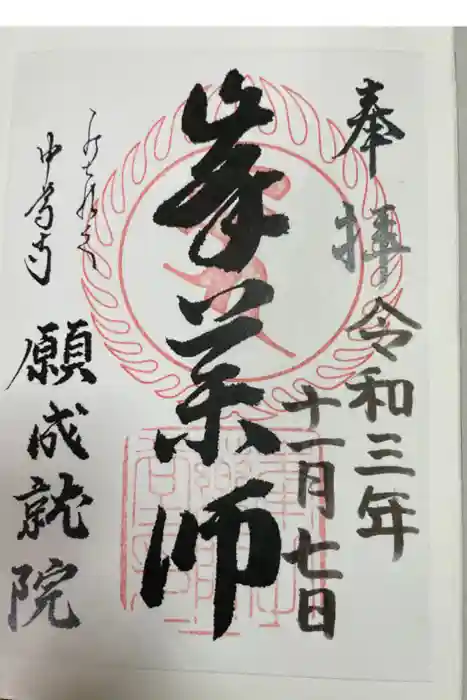 奉拝
令和三年
十一月七日
峯薬師
中尊寺
願成就院